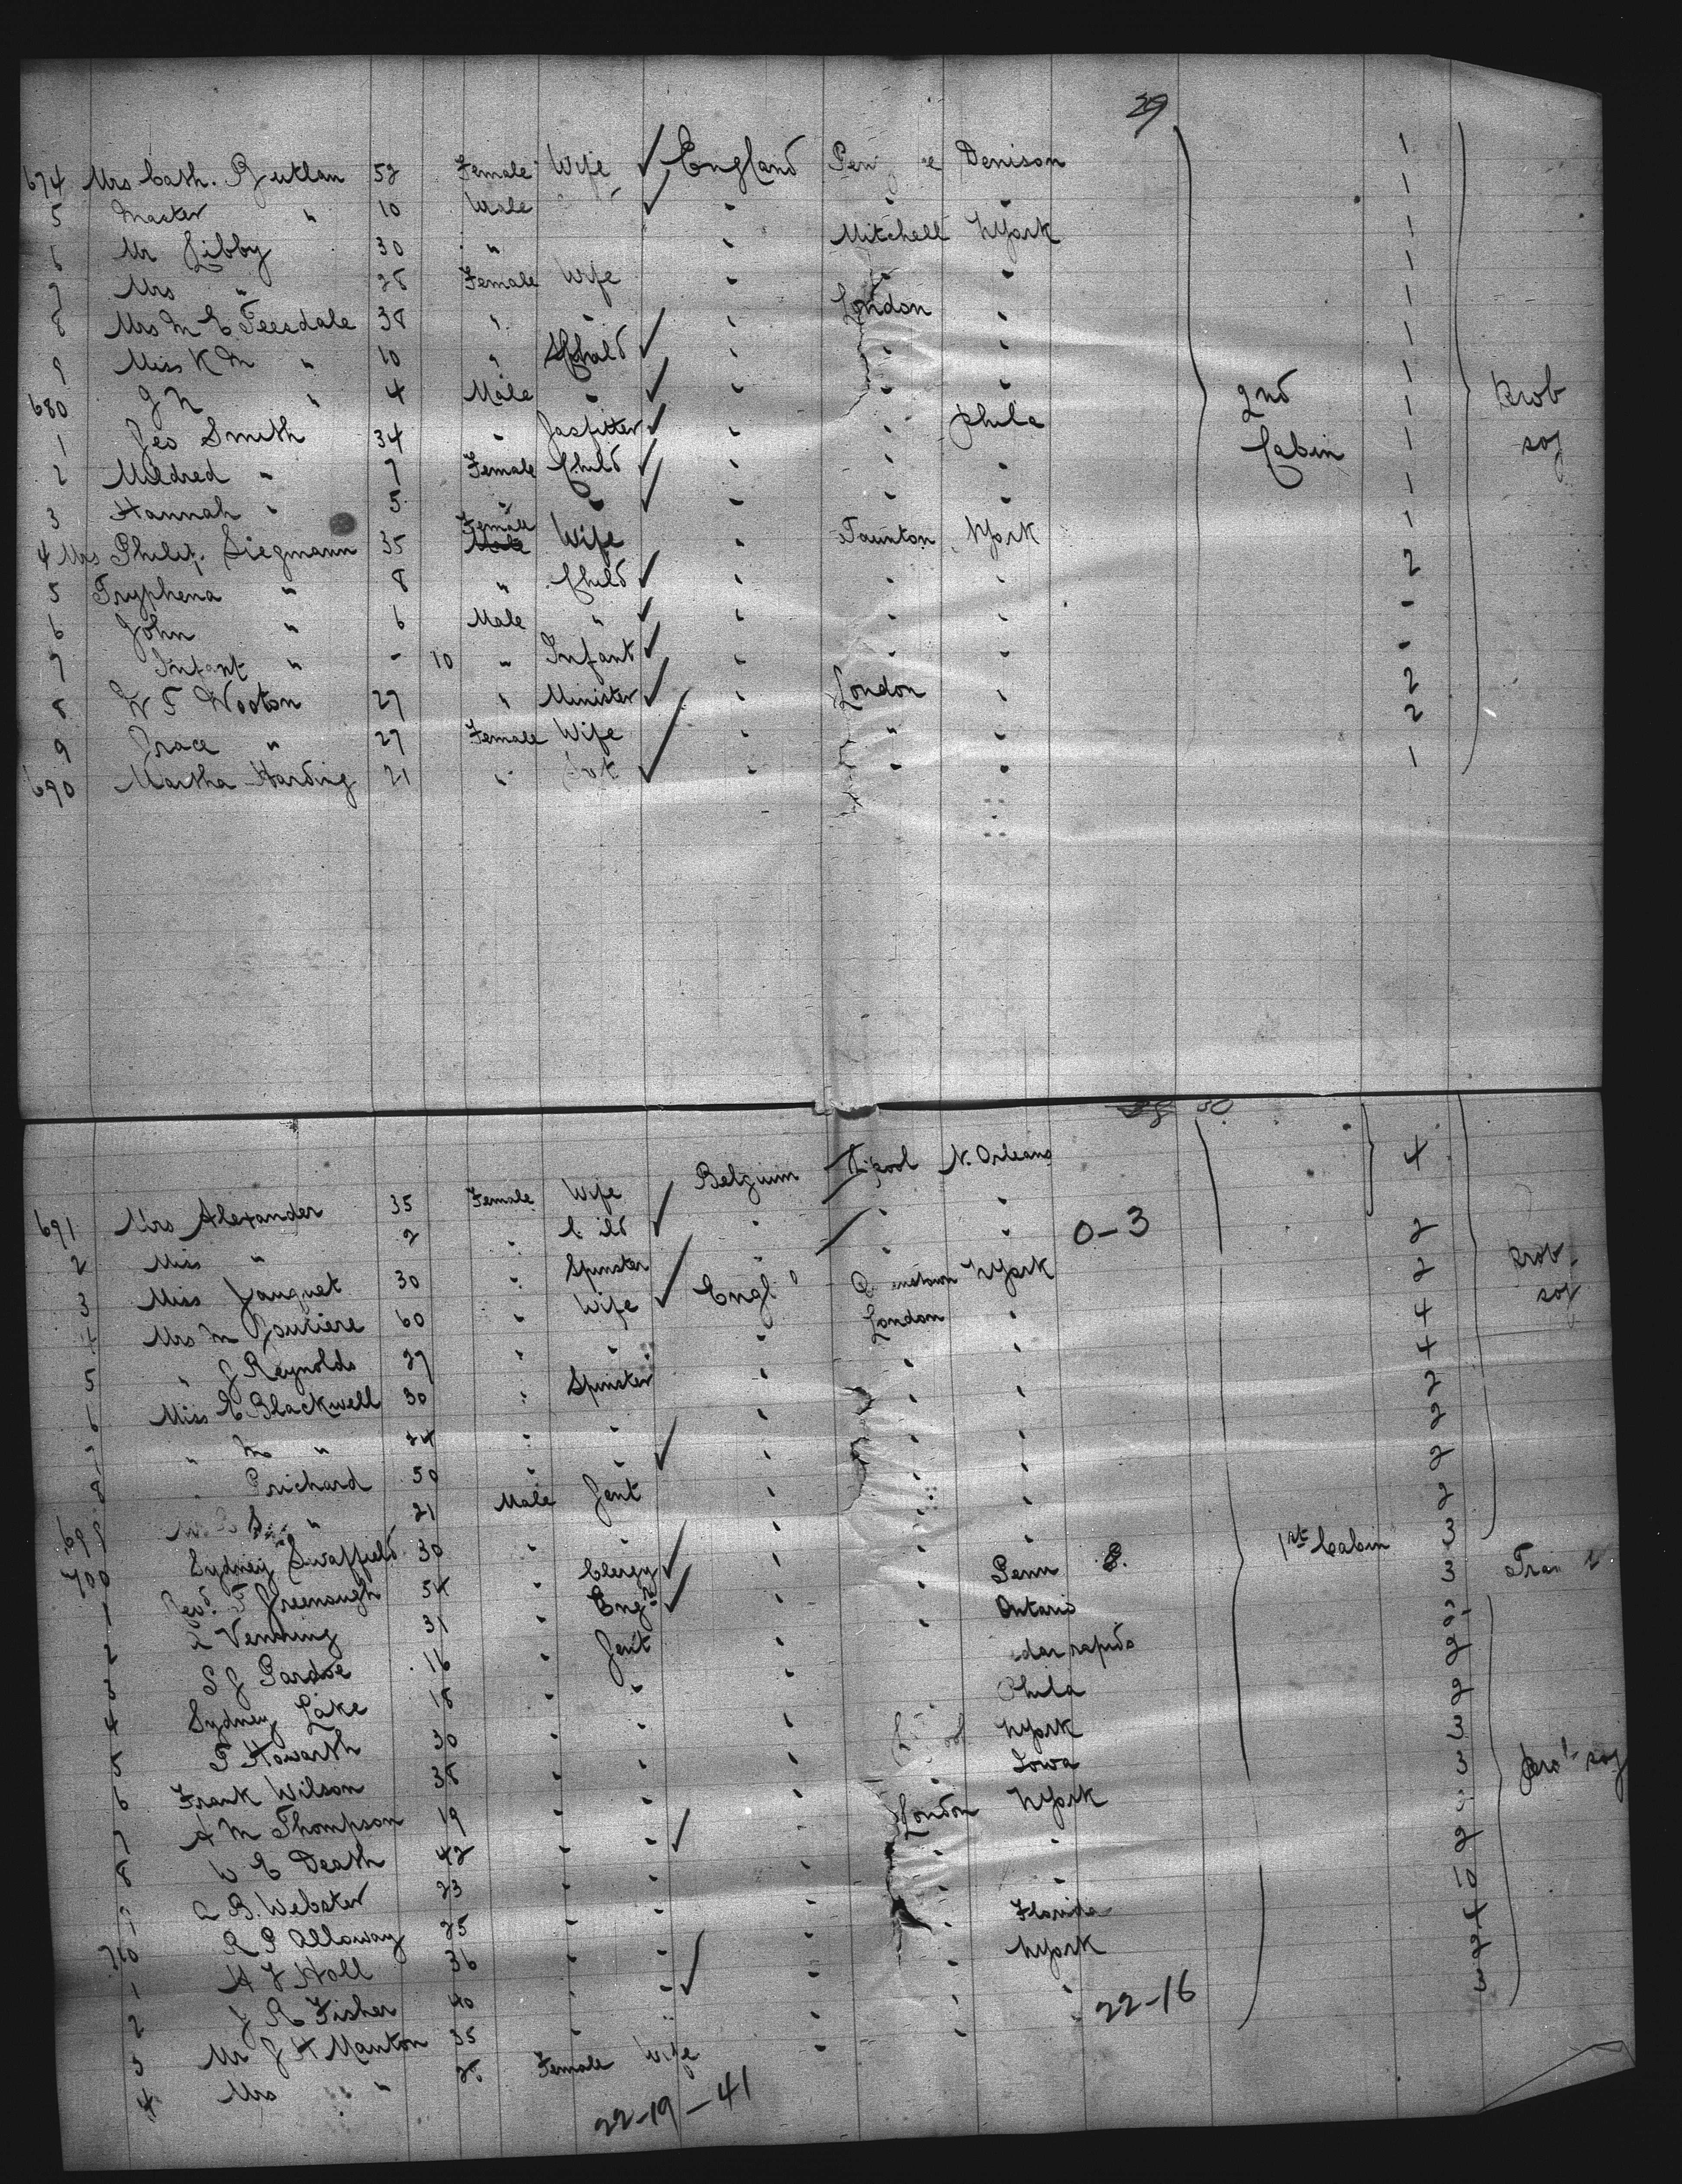 29
674 Mrs Cath. Rutlan 52 Female Wife ✓ England Denison 1
5 Master " 10 Male ✓ " " " 1
6 Mr Libby 30 " " Mitchell NYork 1
7 Mrs " 28 Female Wife " " " 1
8 Mrs M E Teesdale 38 " " " London " 1
9 Miss K M " 10 " Child ✓ " " " 1
680 J N " 4 Male " ✓ " " " 1
1 Geo Smith 34 " Gasfitter ✓ " " Phila 1
2nd Cabin
Prob soj
2 Mildred " 7 Female Child ✓ " " " 1
3 Hannah " 5 " " ✓ " " " 1
4 Mrs Philip. Siegmann 35 Female Wife " Taunton NYork 1
5 Tryphena " 8 " Child ✓ " " " 2
6 John " 6 Male " ✓ " " " -
7 Infant " - 10 " Infant ✓ " " " -
8 W F Wooton 27 " Minister ✓ " London " 2
9 Grace " 27 Female Wife " " " 2
690 Martha Harding 21 " ✓ " " " 1
30
691 Mrs Alexander 35 Female Wife Belgium L'pool N. Orleans 4
2 Miss " 2 " ✓ " " "
0-3
3 Miss Jauquet 30 " Spinster " " " 2
4 Mrs M 60 " Wife ✓ NYork 2
5 " J Reynolds 27 " " " London " 4
6 Miss E Blackwell 30 " Spinster " " " 4
7 " M " 24 " " " " " 2
8 " Prichard 50 " " ✓ " " " 2
699 " 21 Male Gent " " " 2
700 Sydney Swaffield 30 " " " " " 2
Prob. soj
1 Revd. F Greenough 54 " Clergy ✓ " " Penn 3
1st Cabin
2 Venning 31 " Engr ✓ " " Ontario 3
Tran
3 S J Pardoe 16 " Gent " 2
4 Sydney Lake 18 " " " Phila 2
5 T Howarth 30 " " " NYork 2
6 Frank Wilson 38 " " " " Iowa 3
7 A M Thompson 19 " " " London NYork 3
8 W E Death 42 " " ✓ " " "
9 A B. Webster 23 " " " " " 2
710 R P Alloway 25 " " " " Florida 10
1 A J Holl 36 " " " " NYork 4
2 J R Fisher 40 " " ✓ " " " 2
3 Mr J H Manton 35 " " " " " 3
4 Mrs " " 28 Female Wife "
22-16
22-19-41